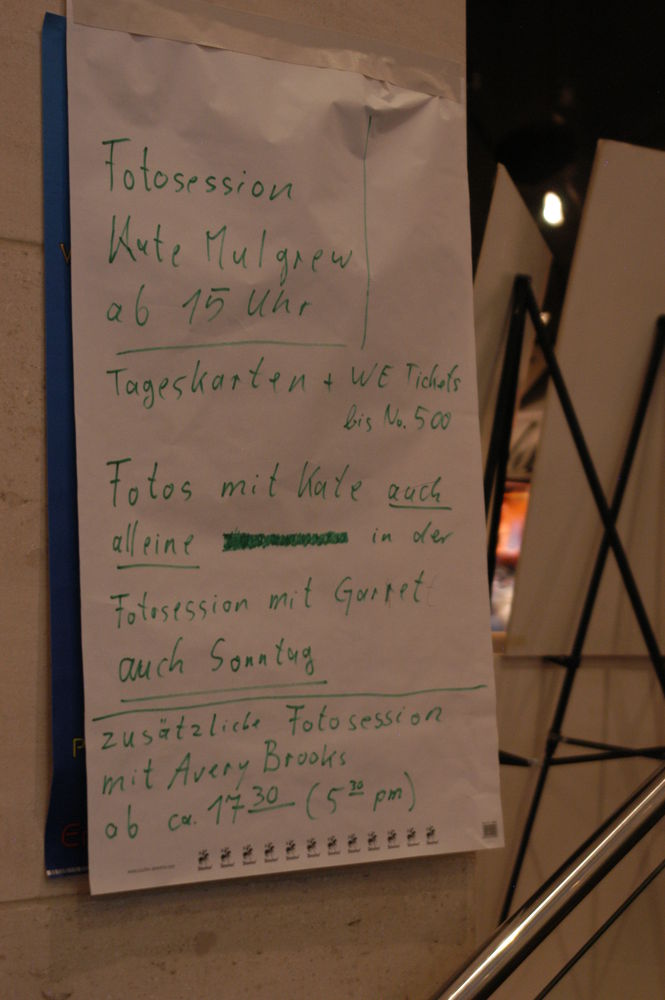 Fotosession
Kate Mulgrew
ab 15 Uhr
Tageskarten + WE Tickets
bis No. 500
Fotos mit Kate auch
alleine in der
Fotosession mit Garrett
auch Sonntag
zusätzliche Fotosession
mit Avery Brooks
ab ca. 17 30 (5 30 pm)